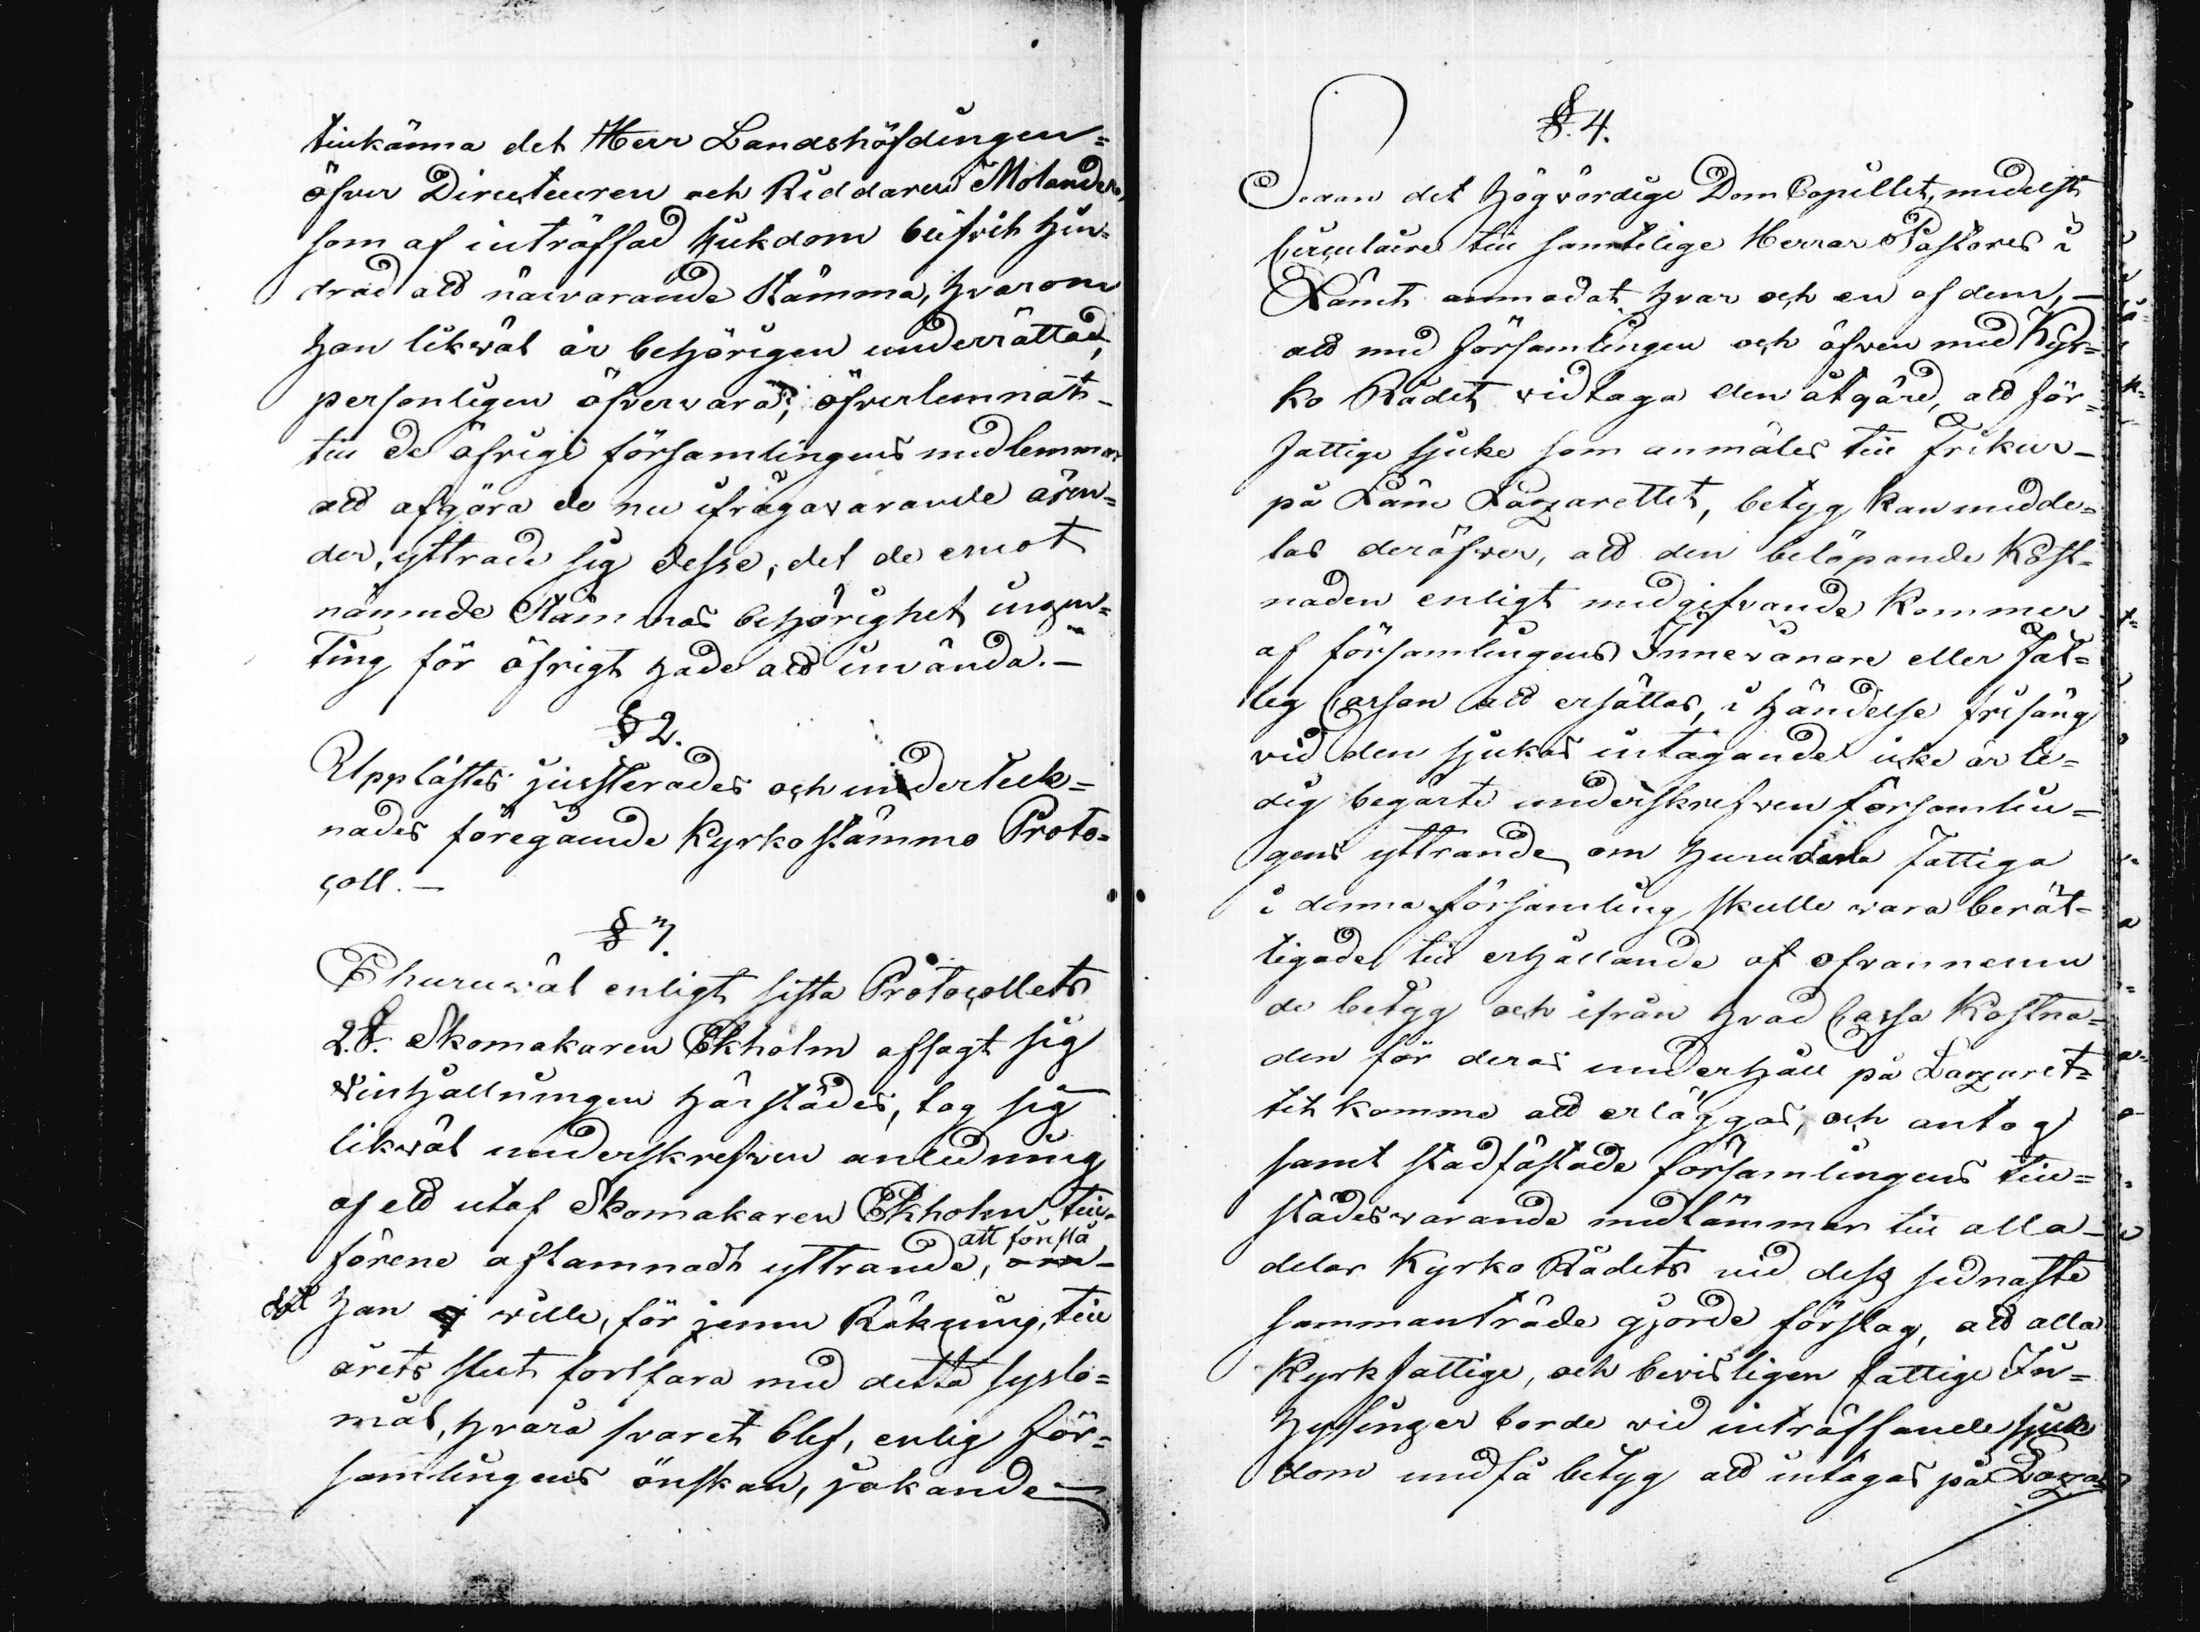 tillkänna det Herr Landshöfdingen=
öfver Directeuren och Riddaren Molander,
som af inträffad sjukdom blifvit hin=
drad att närvarande Stämma, hvarom
han likväl är behörigen underrättad,
personligen öfvervara, öfverlemnat
till de öfrige församlingens medlemmar
att afgöra de nu ifrågavarande ären=
der, yttrade sig desse, det de emot
nämnde Stämmas behörighet ingen=
ting för öfrigt hade att invända. —
§ 2.
Upplästes justerades och underteck=
nades föregående Kyrkostämmo Proto=
coll. —
§ 3.
Ehuruväl enligt sista Protocollets
2.§. Skomakaren Ekholm afsagt sig
Vinhållningen härstädes, tog sig
likväl underskrefven anledning
af ett utaf Skomakaren Ekholm till=
förene aflamnadt yttrande, att förstå
det han ej ville, för jemn Räkning, till
årets slut fortfara med detta syslo=
mål, hvarå svaret blef, enlig för=
samlingens önskan, jakande —
§. 4.
Sedan det Högvördige Dom Capitlet, medelst
Circulaire till samtelige Herrar Pastores i
Länet anmodat hvar och en af dem, —
att med församlingen och äfven med Kyr=
ko Rådet vidtaga den åtgärd, att för=
fattige sjuke som anmäles till Frikur —
på Läns Lazarettet, betyg kan medde=
las deröfver, att den belöpande Kost=
naden enligt medgifvande kommer
af församlingens Innevånare eller Fat=
tig Cassan att ersättas, i händelse frisäng
vid den sjukas intagande icke är le=
dig begärte underskrefven församlin=
gens yttrande om hurudana fattiga
i denna församling skulle vara berät=
tigade till erhållande af ofvannemn
de betyg och ifrån hvad Cassa Kostna=
den för deras underhåll på Lazaret=
tet komme att erläggas, och antog
samt stadfästade församlingens till=
städesvarande medlämmar till alla —
delar Kyrko Rådets vid dess sednaste
sammanträde gjorde förslag, att alla
Kyrkfattige, och bevisligen fattige In=
hysinger borde vid inträffande sjuk
dom undfå betyg att intagas på Laza=